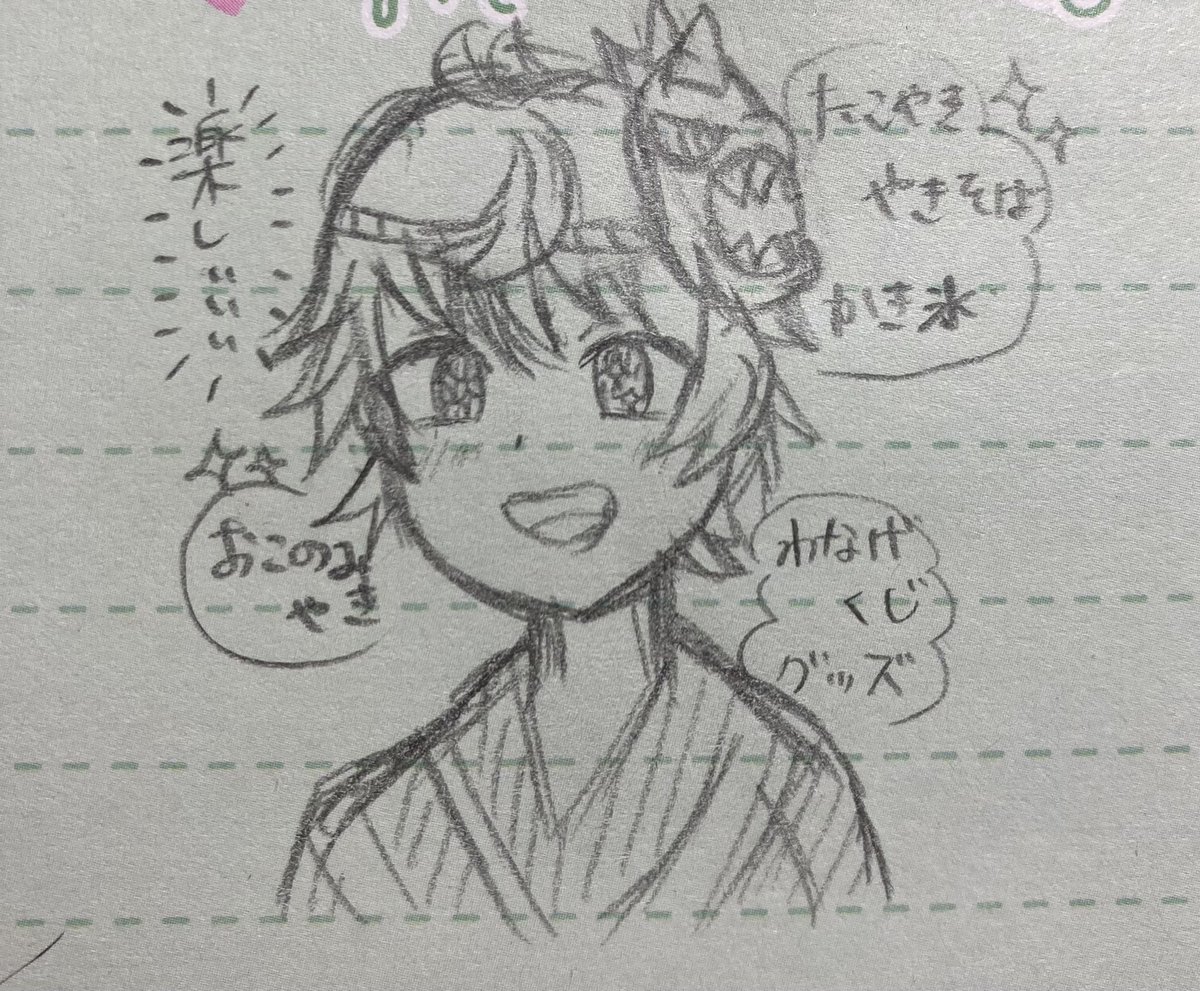 楽しぃぃぃ
たこやき
やきそば
かき氷
おこのみ
やき
わなげ
くじ
グッズ